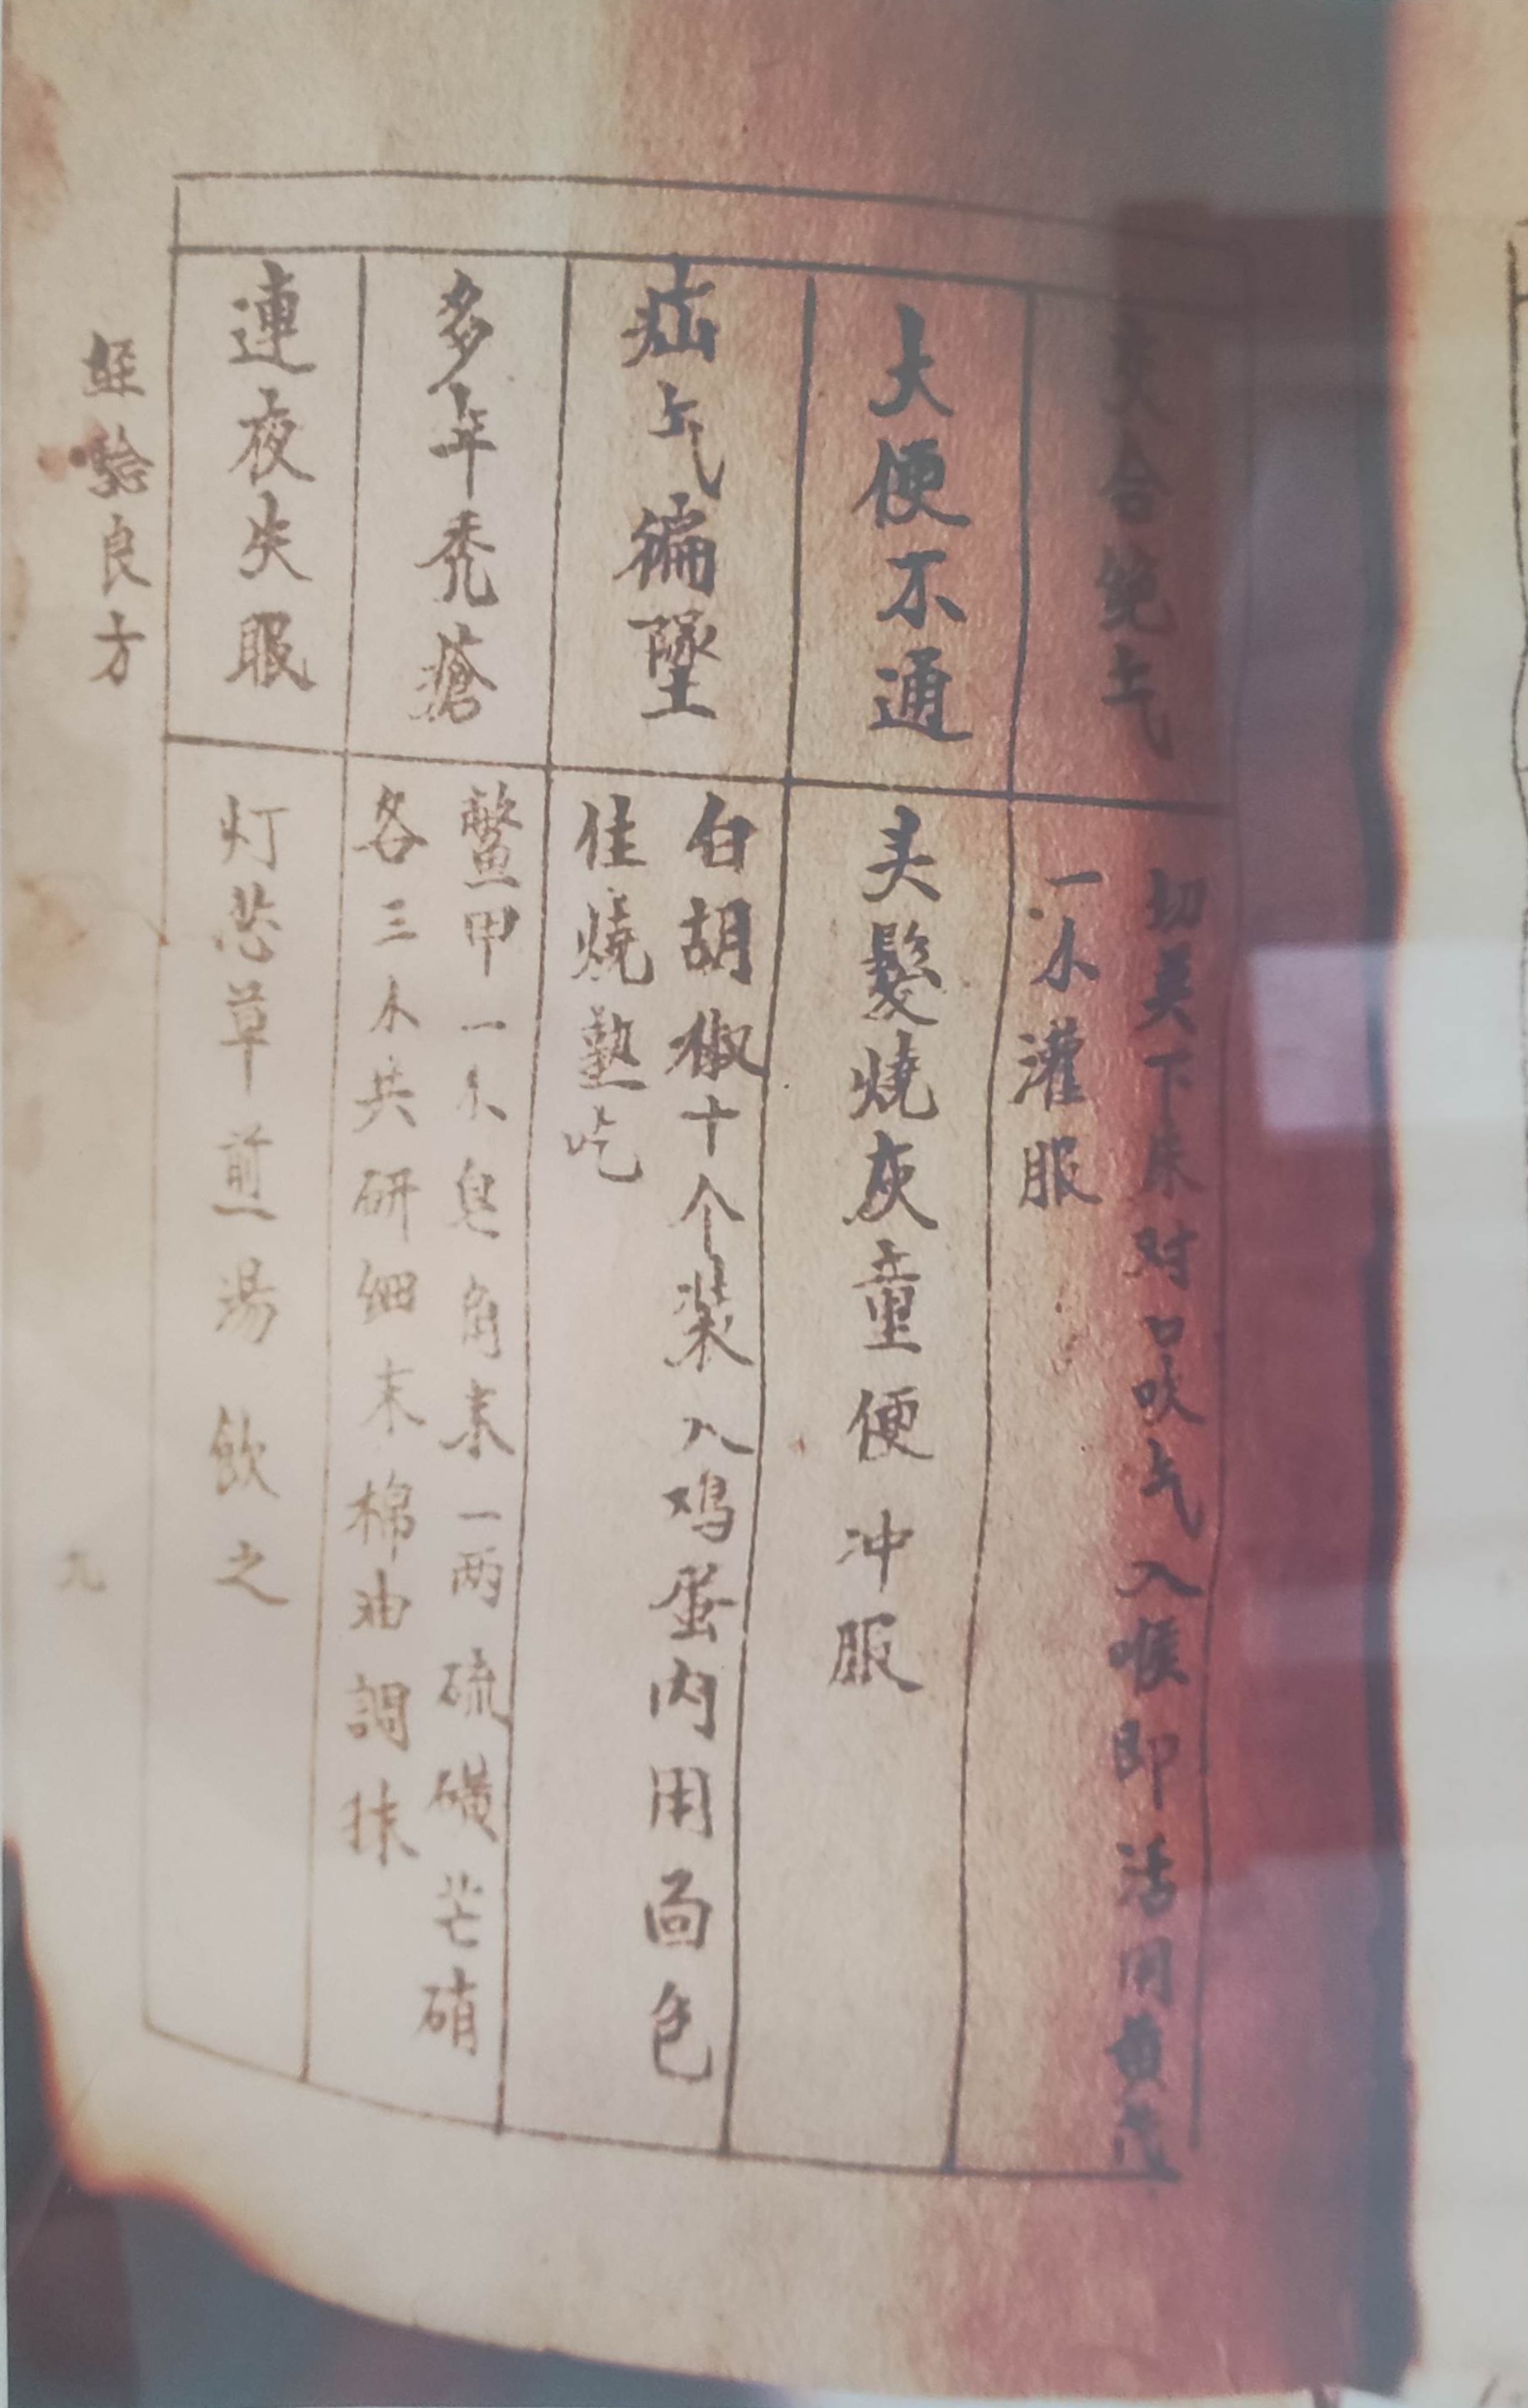 交合絶气
切莫下床对口咬气入喉即活用黄茂
一小灌服
大便不通
头髮燒灰童便冲服
疝气徧墜
白胡椒十个装入鸡蛋内用面包
佳燒熟吃
多年秃瘡
鱉甲一个皂角末一两硫磺芒硝
各三小共研细末棉油調抹
連夜失眠
灯芯草煎湯飲之
經驗良方
九